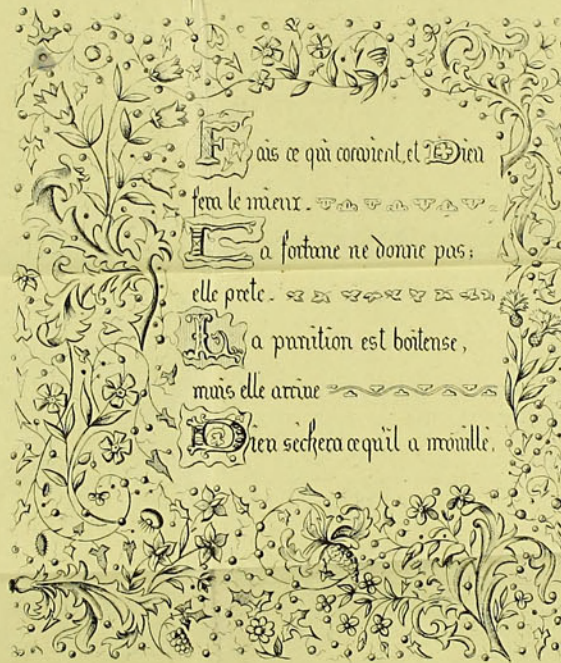 Fais ce qui convient, et Dieu
fera le mieux.
La fortune ne donne pas;
elle prete.
La punition est boiteuse,
mais elle arrive
Dieu sèchera ce qu'il a mouillé.